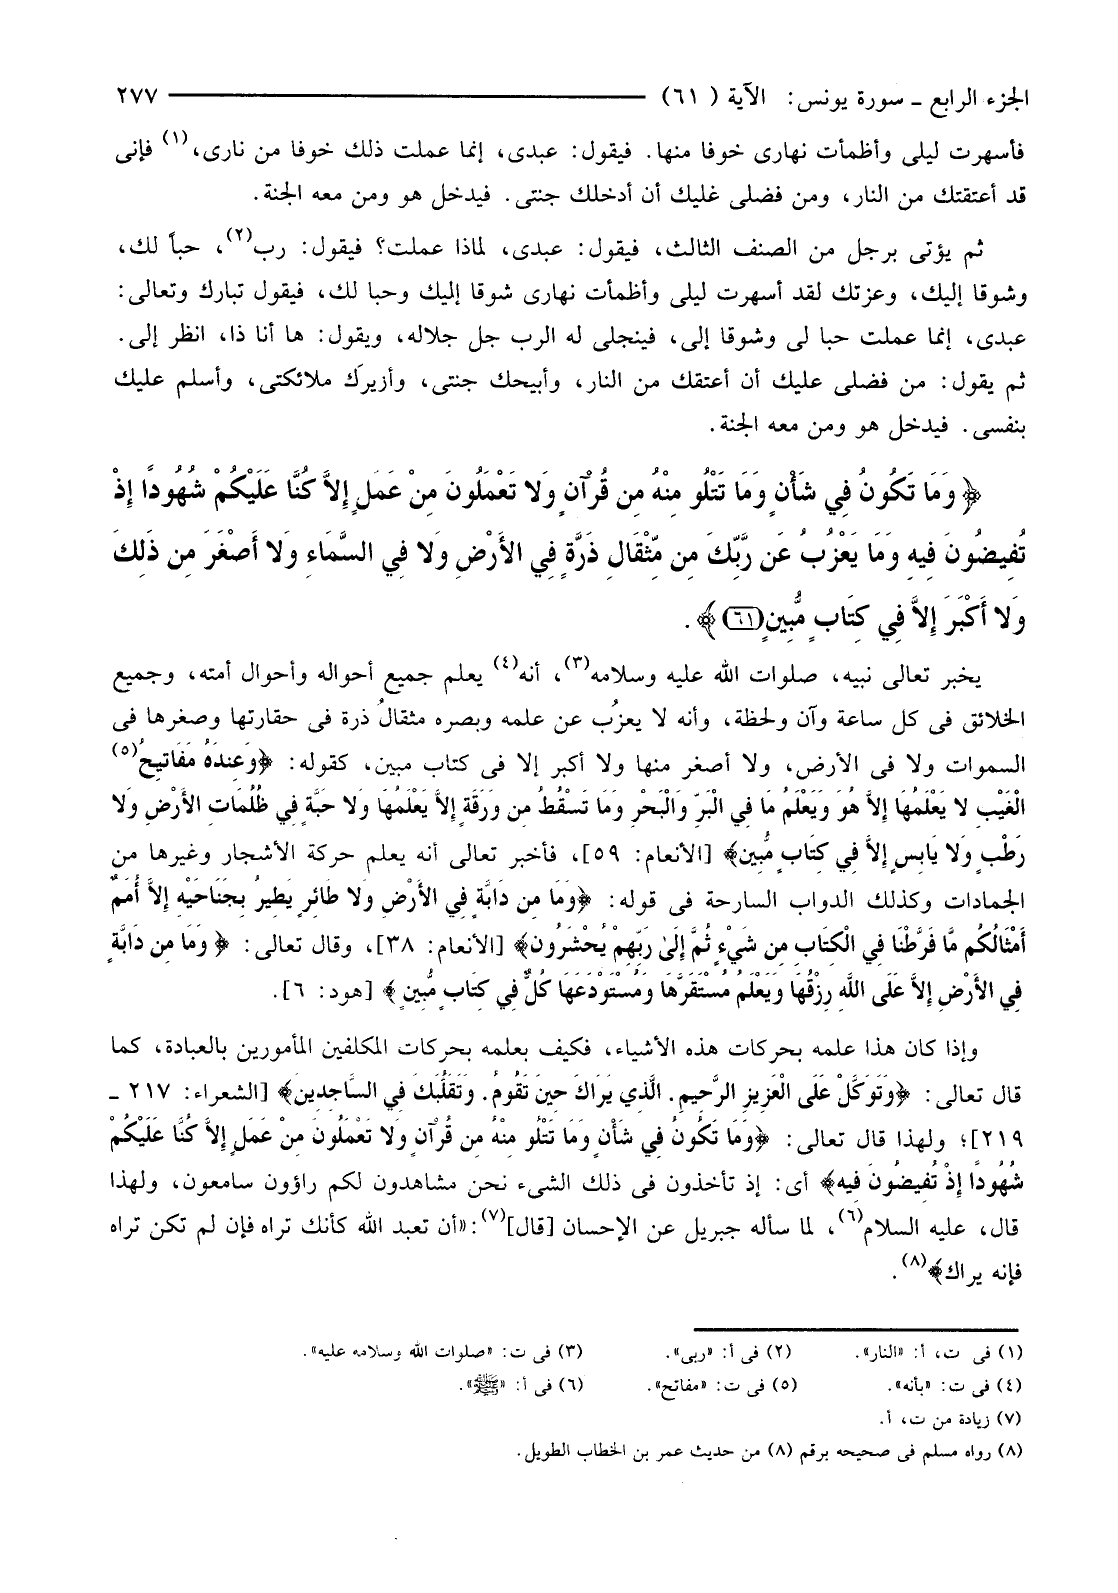 الجزء الرابع ـ سورة يونس: الآية (٦١) ٢٧٧
فأسهرت ليلى وأظمأت نهارى خوفا منها. فيقول: عبدى، إنما عملت ذلك خوفا من نارى،(١) فإنى
قد أعتقتك من النار، ومن فضلى غليك أن أدخلك جنتى. فيدخل هو ومن معه الجنة.
ثم يؤتى برجل من الصنف الثالث، فيقول: عبدى، لماذا عملت؟ فيقول: رب(٢)، حباً لك،
وشوقا إليك، وعزتك لقد أسهرت ليلى وأظمأت نهارى شوقا إليك وحبا لك، فيقول تبارك وتعالى:
عبدى، إنما عملت حبا لى وشوقا إلى، فينجلى له الرب جل جلاله، ويقول: ها أنا ذا، انظر إلى.
ثم يقول: من فضلى عليك أن أعتقك من النار، وأبيحك جنتى، وأزيرَك ملائكتى، وأسلم عليك
بنفسى. فيدخل هو ومن معه الجنة.
﴿وَمَا تَكُونُ فِي شَأْنٍ وَمَا تَتْلُو مِنْهُ مِن قُرْآنٍ وَلا تَعْمَلُونَ مِنْ عَمَلٍ إِلاَّ كُنَّا عَلَيْكُمْ شُهُودًا إِذْ
تُفِيضُونَ فِيهِ وَمَا يَعْزُبُ عَن رَّبِّكَ مِن مِّثْقَالِ ذَرَّةٍ فِي الأَرْضِ وَلا فِي السَّمَاءِ وَلا أَصْغَرَ مِن ذَلِكَ
وَلا أَكْبَرَ إِلاَّ فِي كِتَابٍ مُّبِينٍ (٦١)﴾.
يخبر تعالى نبيه، صلوات الله عليه وسلامه(٣)، أنه(٤) يعلم جميع أحواله وأحوال أمته، وجميع
الخلائق فى كل ساعة وآن ولحظة، وأنه لا يعزُب عن علمه وبصره مثقالُ ذرة فى حقارتها وصغرها فى
السموات ولا فى الأرض، ولا أصغر منها ولا أكبر إلا فى كتاب مبين، كقوله: ﴿وَعِندَهُ مَفَاتِيحُ(٥)
الْغَيْبِ لا يَعْلَمُهَا إِلاَّ هُوَ وَيَعْلَمُ مَا فِي الْبَرِّ وَالْبَحْرِ وَمَا تَسْقُطُ مِن وَرَقَةٍ إِلاَّ يَعْلَمُهَا وَلا حَبَّةٍ فِي ظُلُمَاتِ الأَرْضِ وَلا
رَطْبٍ وَلا يَابِسٍ إِلاَّ فِي كِتَابٍ مُّبِينٍ﴾ [الأنعام: ٥٩]، فأخبر تعالى أنه يعلم حركة الأشجار وغيرها من
الجمادات وكذلك الدواب السارحة فى قوله: ﴿وَمَا مِن دَابَّةٍ فِي الأَرْضِ وَلا طَائِرٍ يَطِيرُ بِجَنَاحَيْهِ إِلاَّ أُمَمٌ
أَمْثَالُكُم مَّا فَرَّطْنَا فِي الْكِتَابِ مِن شَيْءٍ ثُمَّ إِلَىٰ رَبِّهِمْ يُحْشَرُونَ﴾ [الأنعام: ٣٨]، وقال تعالى: ﴿وَمَا مِن دَابَّةٍ
فِي الأَرْضِ إِلاَّ عَلَى اللَّهِ رِزْقُهَا وَيَعْلَمُ مُسْتَقَرَّهَا وَمُسْتَوْدَعَهَا كُلٌّ فِي كِتَابٍ مُّبِينٍ﴾ [هود: ٦].
وإذا كان هذا علمه بحركات هذه الأشياء، فكيف بعلمه بحركات المكلفين المأمورين بالعبادة، كما
قال تعالى: ﴿وَتَوَكَّلْ عَلَى الْعَزِيزِ الرَّحِيمِ. الَّذِي يَرَاكَ حِينَ تَقُومُ. وَتَقَلُّبَكَ فِي السَّاجِدِينَ﴾ [الشعراء: ٢١٧ ـ
٢١٩]؛ ولهذا قال تعالى: ﴿وَمَا تَكُونُ فِي شَأْنٍ وَمَا تَتْلُو مِنْهُ مِن قُرْآنٍ وَلا تَعْمَلُونَ مِنْ عَمَلٍ إِلاَّ كُنَّا عَلَيْكُمْ
شُهُودًا إِذْ تُفِيضُونَ فِيهِ﴾ أى: إذ تأخذون فى ذلك الشىء نحن مشاهدون لكم راؤون سامعون، ولهذا
قال، عليه السلام(٦)، لما سأله جبريل عن الإحسان [قال](٧): «أن تعبد الله كأنك تراه فإن لم تكن تراه
فإنه يراك﴾(٨).
(١) فى ت، أ: «النار». (٢) فى أ: «ربى». (٣) فى ت: «صلوات الله وسلامه عليه».
(٤) فى ت: «بأنه». (٥) فى ت: «مفاتح». (٦) فى أ: «ﷺ».
(٧) زيادة من ت، أ.
(٨) رواه مسلم فى صحيحه برقم (٨) من حديث عمر بن الخطاب الطويل.